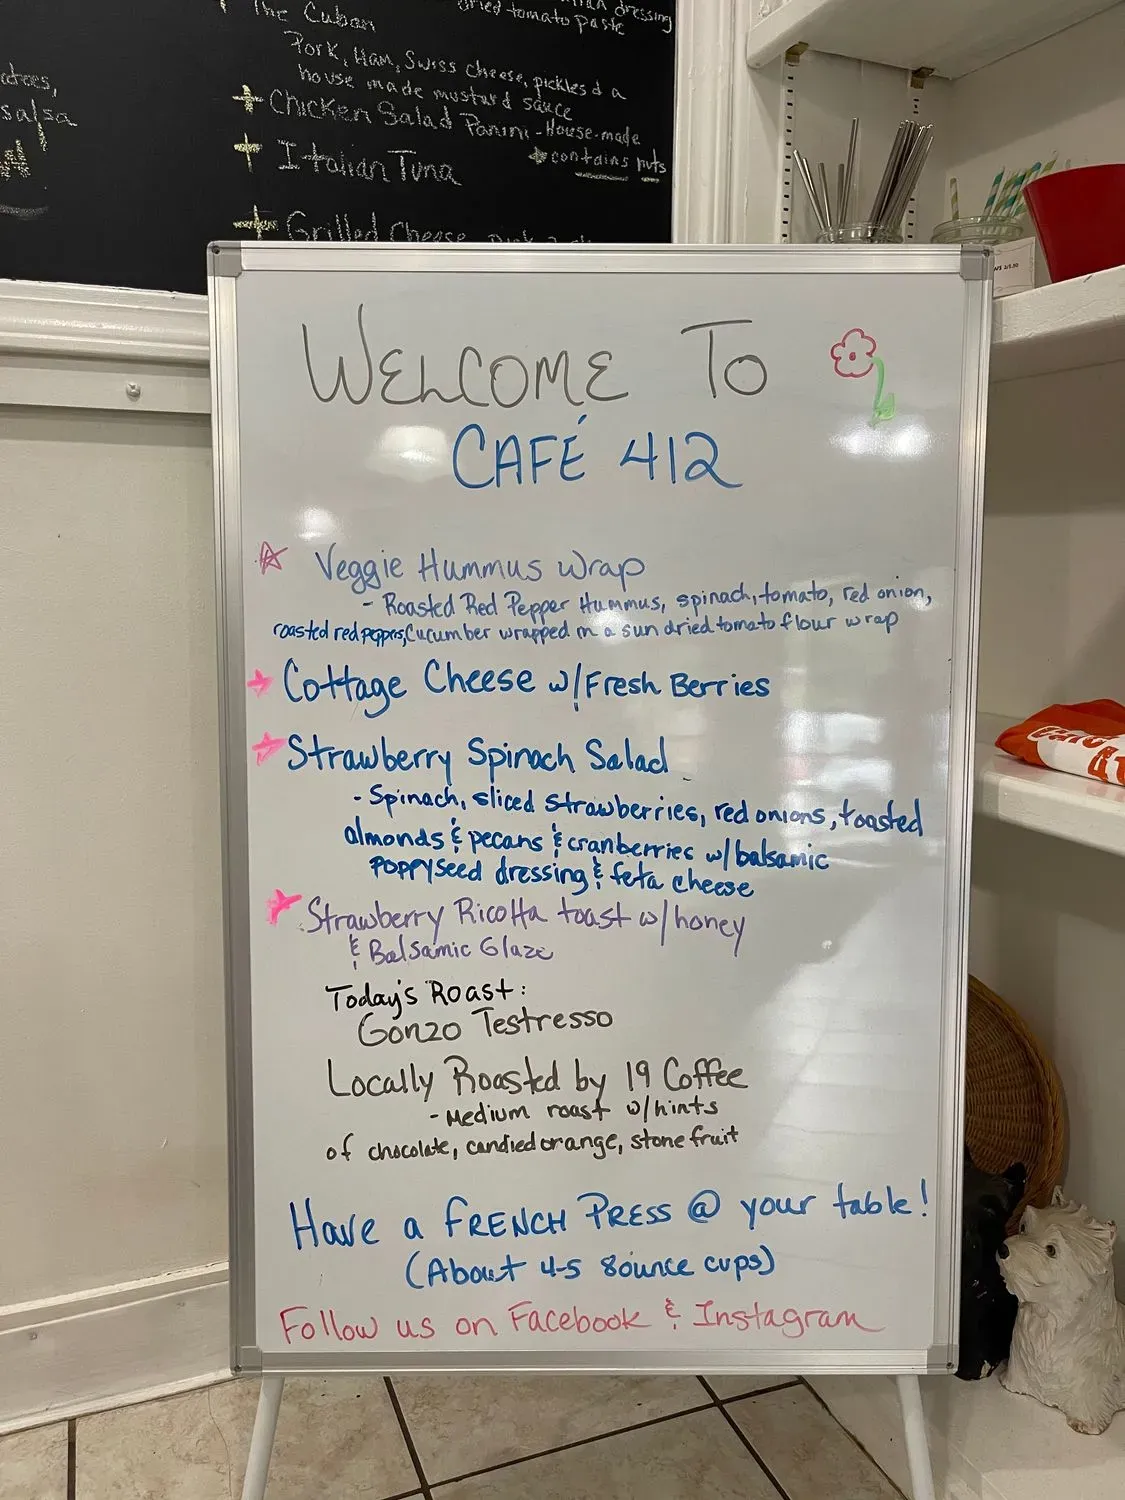 The Cuban
dried tomato paste
dressing
Pork, Ham, Swiss cheese, pickles & a
house made mustard sauce
+ Chicken Salad Panini - House-made
contains nuts
+ Italian Tuna
+ Grilled Cheese
salsa
WELCOME TO
CAFÉ 412
Veggie Hummus Wrap
- Roasted Red Pepper Hummus, spinach, tomato, red onion,
roasted red peppers, Cucumber wrapped in a sun dried tomato flour wrap
Cottage Cheese w/Fresh Berries
Strawberry Spinach Salad
- Spinach, sliced strawberries, red onions, toasted
almonds & pecans & cranberries w/balsamic
poppyseed dressing & feta cheese
Strawberry Ricotta toast w/honey
& Balsamic Glaze
Today's Roast:
Gonzo Testresso
Locally Roasted by 19 Coffee
- Medium roast w/hints
of chocolate, candied orange, stone fruit
Have a FRENCH PRESS @ your table!
(About 4-5 8ounce cups)
Follow us on Facebook & Instagram